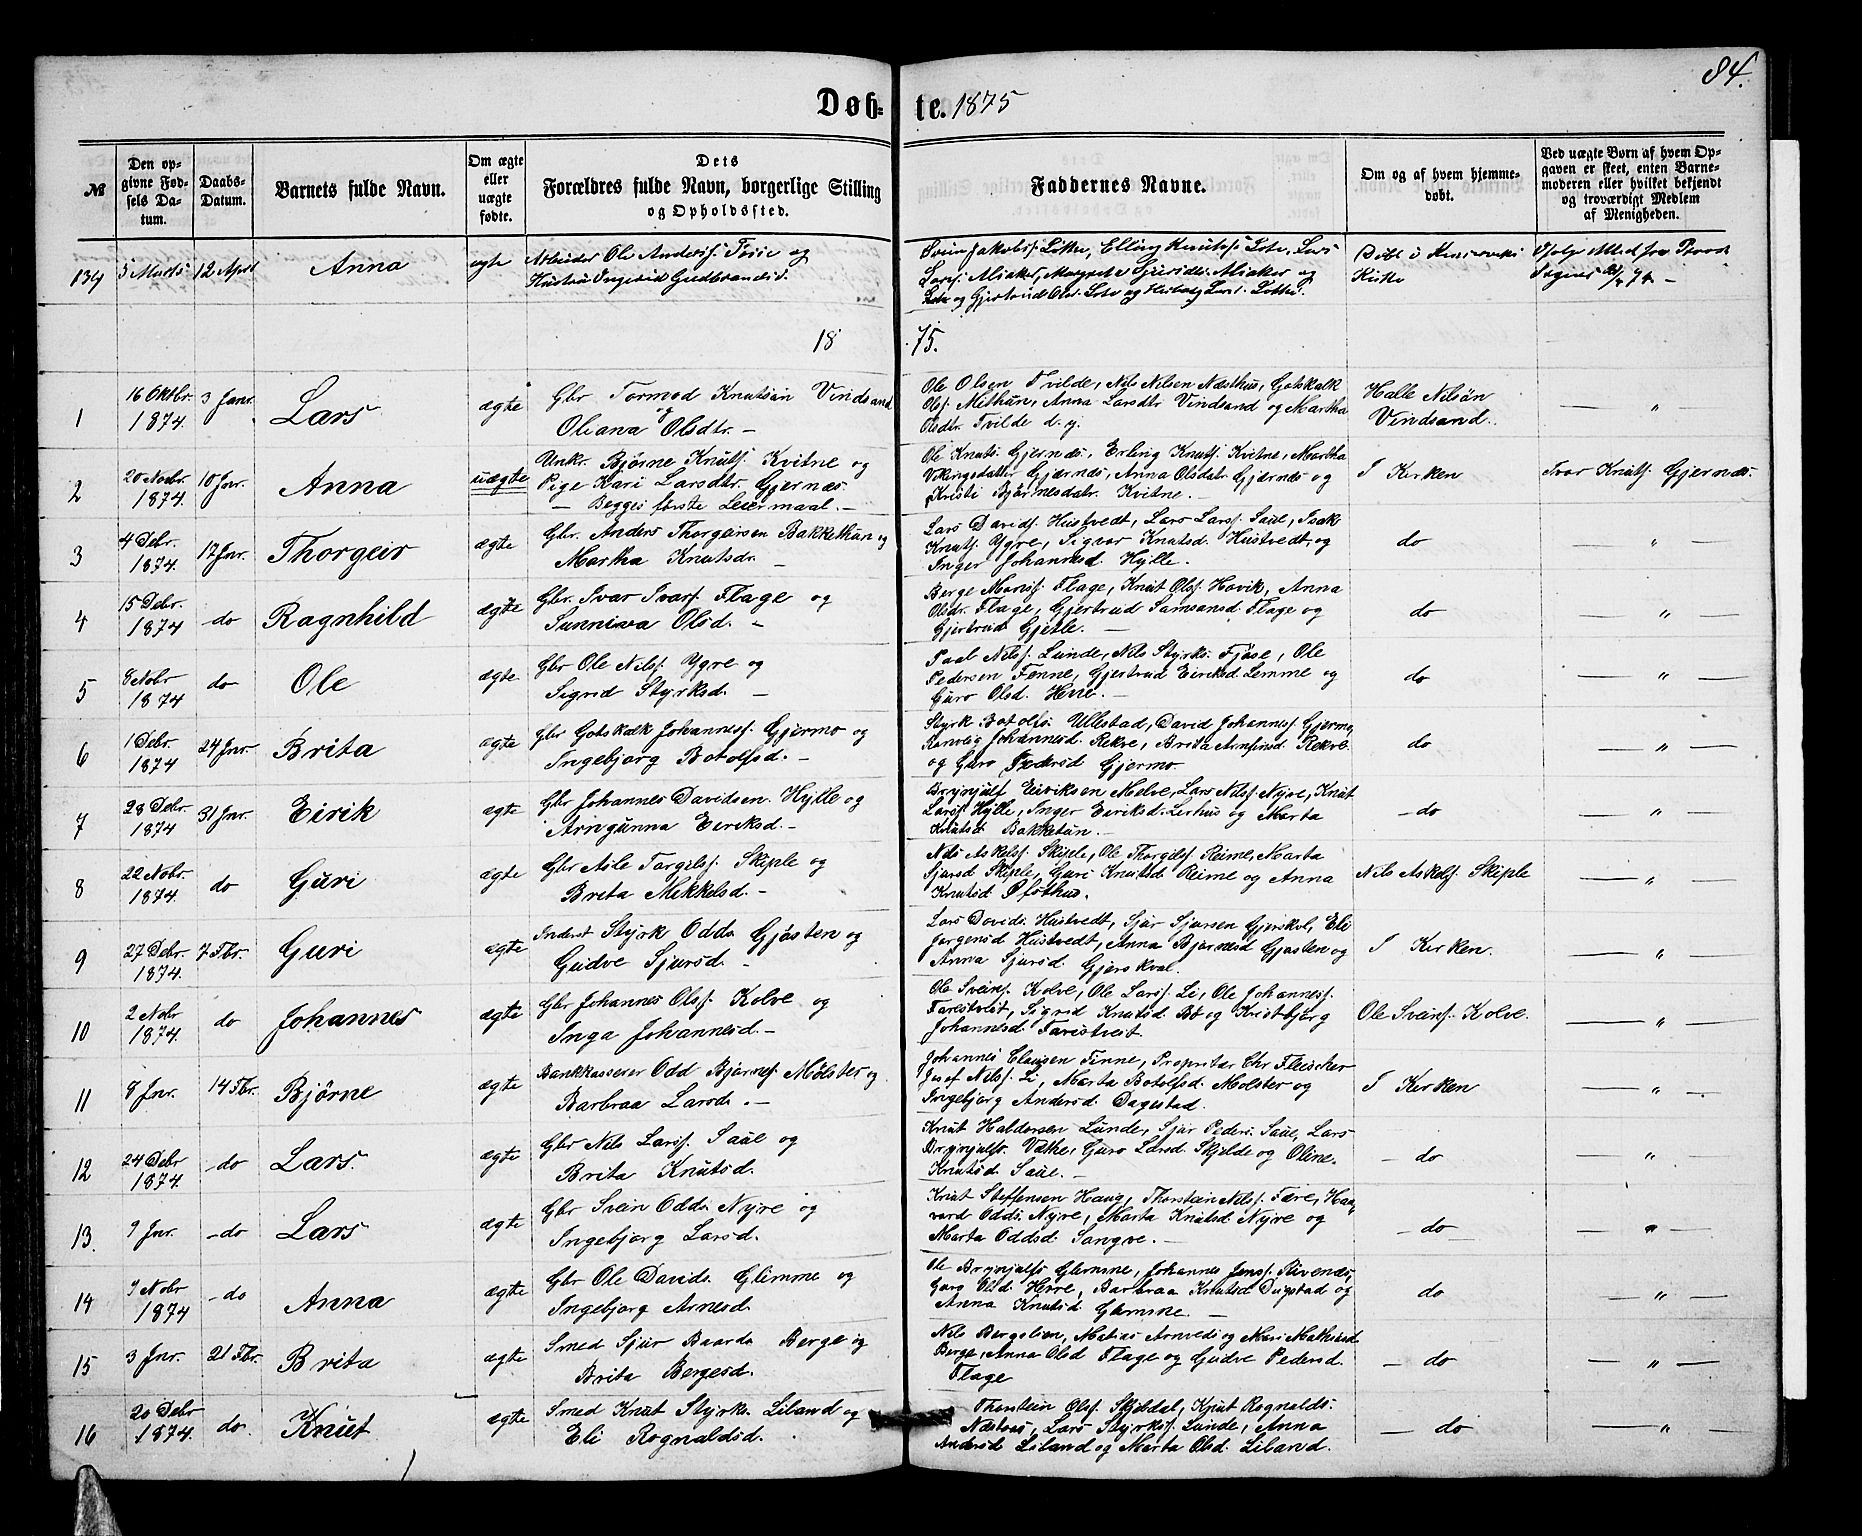 84.
Døb- te. 1875
№
Den op-
givne Fød-
sels Da-
tum.
Daabs-
Datum.
Barnets fulde Navn.
Om ægte
eller
uægte
fødte.
Dets
Forældres fulde Navn, borgerlige Stilling
og Opholdssted.
Faddernes Navne.
Om og af hvem hjemme-
døbt.
Ved uægte Børn af hvem Op-
gaven er skeet, enten Barne-
moderen eller hvilket bekjendt
og troværdigt Medlem
af Menigheden.
134 5 Marts 12 April Anna ægte Arbeider Ole Anders. og
Hustru Ingebor Gudbrandsd.
Svein Jakobs. Lotte, Elling Knuts. Lote, Lars
Kirke
18 75.
1 16 Oktbr. 1874. 3 Janr. Lars ægte
Gbr Tormod Knutsøn Vindsand
og
Oleana Olsdtr. —
Ole Olsen Tvilde, Nils Nilsen Næsthus, Gotskalk
Olss. Methun, Anna Larsdtr Vindsand og Martha
Olsdtr. Tvilde d. y.
Halle Nilsøn
Vindsand.
— " —
2 20 Novbr. 1874. 10 Jnr. Anna uægte
Unkr. Bjørne Knuts. Kvitne og
Pige Kari Larsdtr. Gjernæs
— Begges første Leiermaal. —
Ole Knuts. Gjernæs, Erling Knuts. Kvitne, Martha
Vikingsdatter Gjernæs, Anna Olsdatr Gjernæs og
Kristi Bjørnesdatr. Kvitne.
I Kirken
Ivar Knuts. Gjernæs.
3 4 Debr. 1874. 17 Jnr. Thorgeir ægte
Gbr. Anders Thorgeirsen Bakkethun og
Martha Knutsdr. —
Lars Davids. Hustvedt, Lars Larss. Saue, Isak
Knuts. Ygre, Sigvor Knutsd. Hustvedt, og
Inger Johannesd. Hylle.
do
— " —
4 15 Debr. 1874 do Ragnhild ægte
Gbr. Ivar Ivars. Flage og
Sunniva Olsd. —
Berge Monss. Flage, Knut Olss. Hovik, Anna
Olsdr. Flage, Gjertrud Samsonsd. Flage og
Gjertrud Gjelle. —
do
— " —
5 8 Nobr 1874 do Ole ægte
Gbr Ole Nilss. Ygre og
Sigrid Styrksd. —
Paal Nilss. Lunde, Nils Styrks. Fjøse, Ole
Pedersen Fenne, Gjertrud Eiriksd. Lemme og
Guro Olsd. Herre. —
do
— " —
6 1 Debr. 1874 24 Jnr. Brita ægte
Gbr Gotskalk Johanness. Gjermo og
Ingebjorg Botolfsd. —
Styrk Botolfs. Ullestad, David Johanness. Gjermo,
Ranveig Johannesd. Rekve, Brita Arnfinsd. Rekve
og Guro Gjermo.
do
— " —
7 28 Debr. 1874 31 Jnr. Eirik ægte
Gbr Johannes Davidsen Hylle og
Arngunna Eiriksd. —
Brynjulf Eiriksen Melve, Lars Nilss. Nyre, Knut
Larss. Hylle, Inger Eiriksd. Lerhus og Marta
Knutsd Bakketun. —
— do
— " —
8 22 Nobr. 1874. do Guri ægte
Gbr Asle Torgilss. Skiple og
Brita Mikkelsd. —
Nils Askelss. Skiple, Ole Thorgilss. Reime, Marta
Sjursd Skiple, Guri Knutsd Reime og Anna
Knutsd
Nils Askelss. Skiple
— " —
9 27 Debr. 1874. 7 Fbr. Guri ægte
Inderst Styrk Odds. Gjøsten og
Gudve Sjursd. —
Lars Davids. Hustvedt, Sjur Sjursen Gjerskvl, Eli
Jørgensd Hustvedt, Anna Bjørnesd Gjøsten og
Anna Sjursd. Gjerskval.
I Kirken.
— " —
10 2 Nobr 1874. do Johannes ægte
Gbr Johannes Olss. Kolve og
Inga Johannesd. —
Ole Sveins. Kolve, Ole Larss. Li, Ole Johanness.
Farestveit, Sigrid Knutsd. Bø og Kristbjørg
Johannesd Farestveit.
Ole Sveins. Kolve.
— " —
11 8 Jnr. 14 Fbr. Bjørne ægte
Bankkasserer Odd Bjørnes. Mølster og
Barbraa Larsd. —
Johannes Clausen Finne, Proprietær Chr Fleischer
Josef Nilss. Li, Marta Botolfsd. Mølster og
Ingebjorg Andersd. Dagestad.
I Kirken
— " —
12 24 Debr 1874. do Lars. ægte
Gbr Nils Larss. Saue og
Brita Knutsd.
Knut Haldorsen Lunde, Sjur Peders. Saue, Lars
Brynjulfs. Væthe, Guro Larsd. Skjelde og Oline
Knutsd. Saue. —
— do
— " —
13. 9 Jnr. do Lars ægte
Gbr Svein Odds Nyre og
Ingebjorg Larsd.
Knut Steffensen Haug, Thorstein Nilss. Fære, Haa-
vard Odds. Nyre, Marta Knutsd Nyre og
Marta Oddsd. Sangve. —
— do
— " —
14 9 Nobr 1874 do Anna ægte
Gbr Ole Davids. Glimme og
Ingebjorg Arnesd.
Ole Brynjulfs Glimme, Johannes Jenss. Rivenæs,
Guro Olsd. Herre, Barbraa Knutsd Dugstad og
Anna Knutsd Glimme. —
do
— " —
15 3 Jnr. 21 Fbr. Brita ægte
Smed Sjur Baards Berge og
Brita Bergesd.
Nils Bergslien, Matias Arnveds og Mari Mathisd
Berge, Anna Olsd Flage og Gudve Pedersd.
Flage
— do
— " —
16 20 Debr 1874. do Knut ægte
Smed Knut Styrks. Liland og
Eli Rognaldsd.
Thorstein Olss. Skjeldal, Knut Rognalds.
Næsheim, Lars Styrkss. Lunde, Anna
Andersd Liland og Marta Olsd. Liland.
— do
— " —